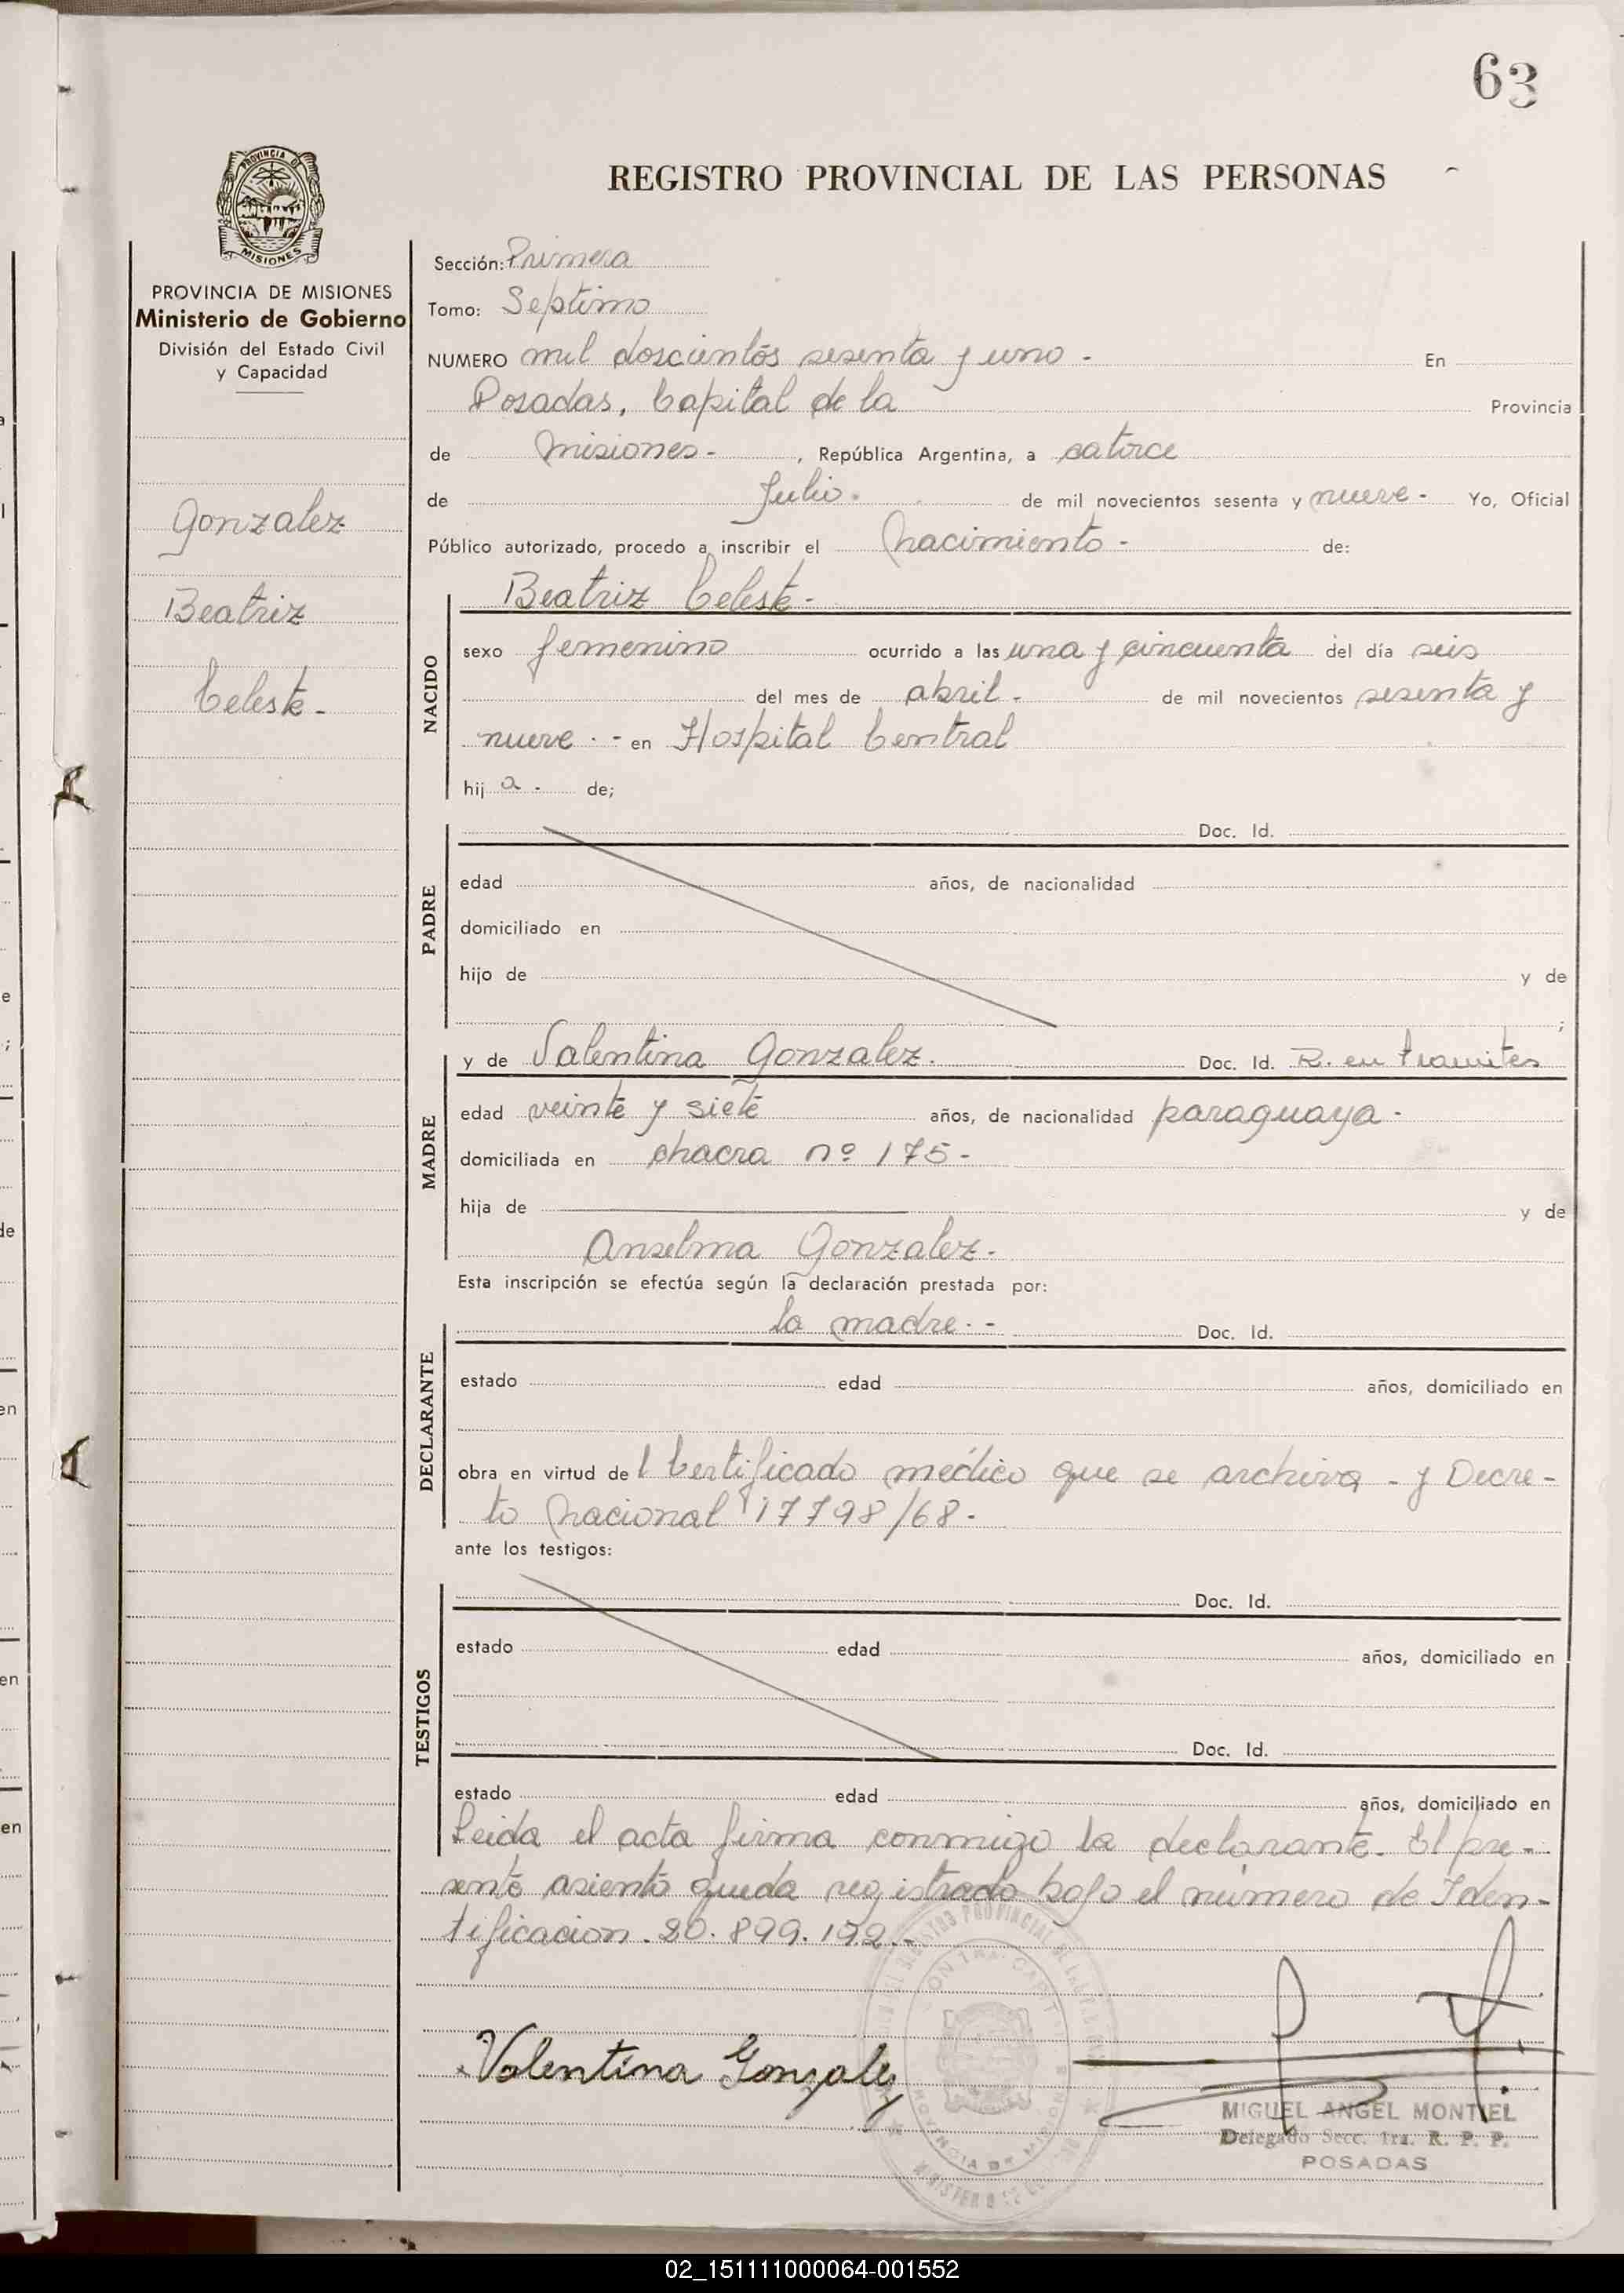 63
PROVINCIA DE
MISIONES
REGISTRO PROVINCIAL DE LAS PERSONAS
PROVINCIA DE MISIONES
Ministerio de Gobierno
División del Estado Civil
y Capacidad
Gonzalez
Beatriz
Celeste -
Sección: Primera
Tomo: Septimo
NUMERO mil doscientos sesenta y uno - En
Posadas, Capital de la Provincia
de Misiones - , República Argentina, a catorce
de Julio. de mil novecientos sesenta y nueve - Yo, Oficial
Público autorizado, procedo a inscribir el Nacimiento - de:
NACIDO
Beatriz Celeste -
sexo femenino ocurrido a las una y cincuenta del día seis
del mes de abril - de mil novecientos sesenta y
nueve . - en Hospital Central
hij a . de;
PADRE
Doc. Id.
edad años, de nacionalidad
domiciliado en
hijo de y de
;
MADRE
y de Valentina Gonzalez. Doc. Id. R. en tramites
edad veinte y siete años, de nacionalidad paraguaya -
domiciliada en chacra nº 175 -
hija de y de
Anselma Gonzalez -
Esta inscripción se efectúa según la declaración prestada por:
DECLARANTE
la madre . - Doc. Id.
estado edad años, domiciliado en
obra en virtud de l Certificado médico que se archiva - y Decre-
to Nacional 17798/68 -
ante los testigos:
TESTIGOS
Doc. Id.
estado edad años, domiciliado en
Doc. Id.
estado edad años, domiciliado en
Leida el acta firma conmigo la declarante. El pre-
sente asiento queda registrado bajo el número de Iden-
tificacion . 20.899.192 . -
Valentina Gonzalez
MIGUEL ANGEL MONTIEL
Delegado Secc. 1ra. R. P. P.
POSADAS
02_151111000064-001552